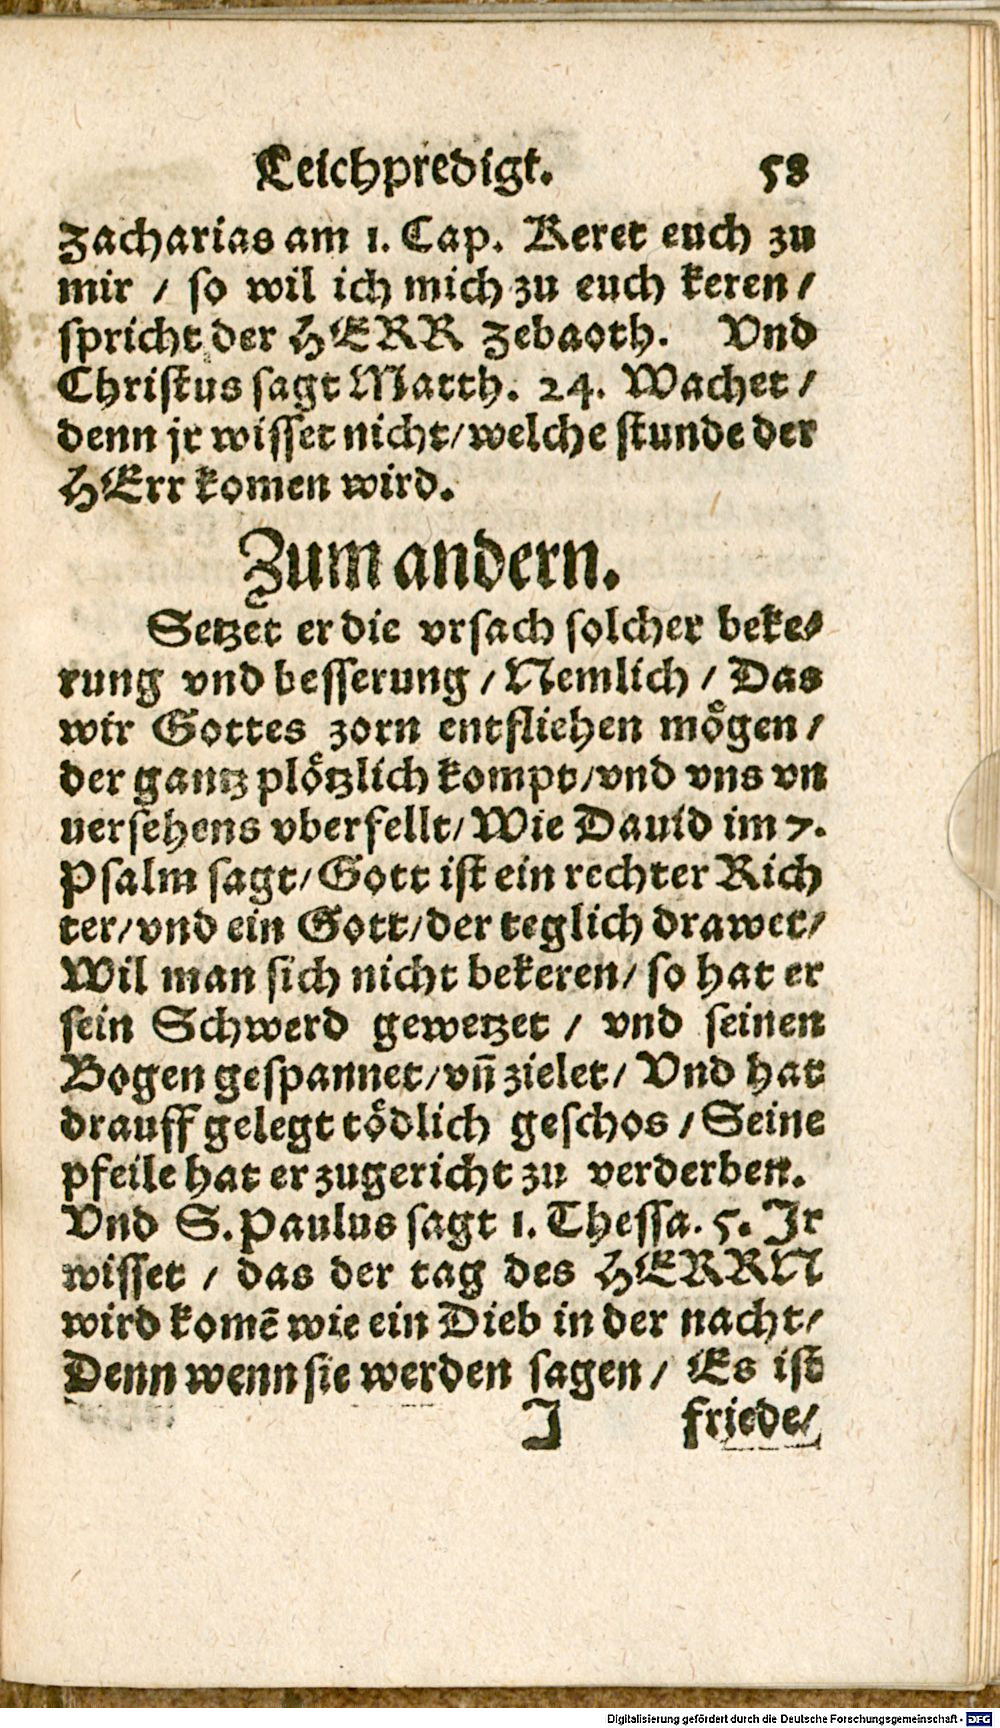 Leichpredigt. 58
Zacharias am 1. Cap. Keret euch zu
mir / so wil ich mich zu euch keren/
spricht der HERR Zebaoth. Vnd
Christus sagt Matth. 24. Wachet/
denn jr wisset nicht/welche stunde der
HErr komen wird.
Zum andern.
Setzet er die vrsach solcher beke-
rung vnd besserung / Nemlich / Das
wir Gottes zorn entfliehen mögen/
der gantz plötzlich kompt/vnd vns vn
uersehens vberfellt/ Wie Dauid im 7.
Psalm sagt/ Gott ist ein rechter Rich
ter/vnd ein Gott/der teglich drawet/
Wil man sich nicht bekeren/ so hat er
sein Schwerd gewetzet / vnd seinen
Bogen gespannet/vñ zielet/ Vnd hat
drauff gelegt tödlich geschos / Seine
pfeile hat er zugericht zu verderben.
Vnd S. Paulus sagt 1. Thessa. 5. Jr
wisset / das der tag des HERRN
wird komē wie ein Dieb in der nacht/
Denn wenn sie werden sagen / Es ist
J friede/
Digitalisierung gefördert durch die Deutsche Forschungsgemeinschaft - DFG